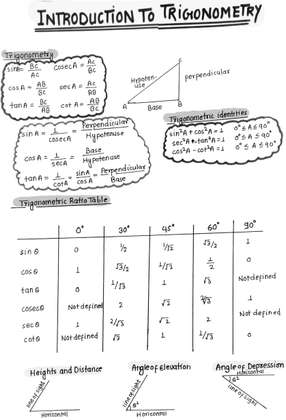 INTRODUCTION TO TRIGONOMETRY
Trigonometry
sinA = BC/AC cosecA = AC/BC
cosA = AB/BC secA = AC/AB
tanA = BC/AB cotA = AB/BC
Hypotenuse
perpendicular
A Base B
sinA = 1/cosecA = Perpendicular/Hypotenuse
cosA = 1/secA = Base/Hypotenuse
tanA = 1/cotA = sinA/cosA = Perpendicular/Base
Trigonometric identities
sin²A + cos²A = 1 0° ≤ A ≤ 90°
sec²A + tan²A = 1 0° ≤ A ≤ 90°
cos²A - cot²A = 1 0° ≤ A ≤ 90°
Trigonometric Ratio Table
0° 30° 45° 60° 90°
sin θ 0 1/2 1/√2 √3/2 1
cos θ 1 √3/2 1/√2 1/2 0
tan θ 0 1/√3 1 √3 Not defined
cosec θ Not defined 2 √2 2/√3 1
sec θ 1 2/√3 √2 2 Not defined
cot θ Not defined √3 1 1/√3 0
Heights and Distance
line of sight
Horizontal
Angle of Elevation
line of sight
θ°
Horizontal
Angle of Depression
Horizontal
θ°
line of sight